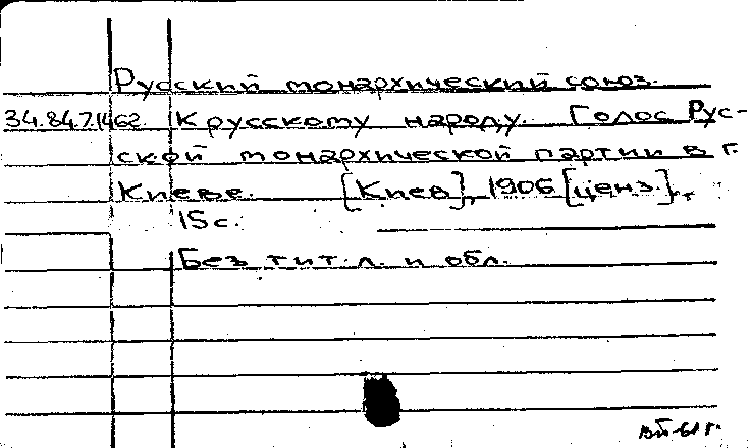 Русский монархический союз.
34.84.7.1462. К русскому народу. Голос Рус-
ской монархической партии в г.
Киеве. [Киев], 1906 [ценз.],
15 с.
Без тит. л. и обл.